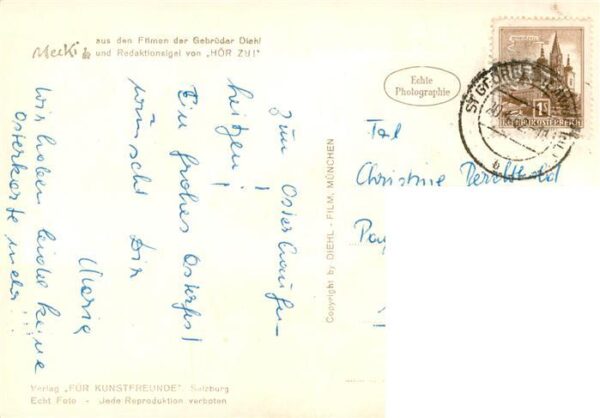 Mecki
aus den Filmen der Gebrüder Diehl
und Redaktionsigel von „HÖR ZU!"
Zum Osterhasen-
heitzen!
Ein frohes Osterfest
wünscht Dir
Maria
Wir haben leider keine
Osterkarte mehr!!!
Verlag „FÜR KUNSTFREUNDE" Salzburg
Echt Foto - Jede Reproduktion verboten
Copyright by DIEHL - FILM, MÜNCHEN
Echte
Photographie
ST. GEORGEN
1S
REPUBLIK ÖSTERREICH
b
Christine